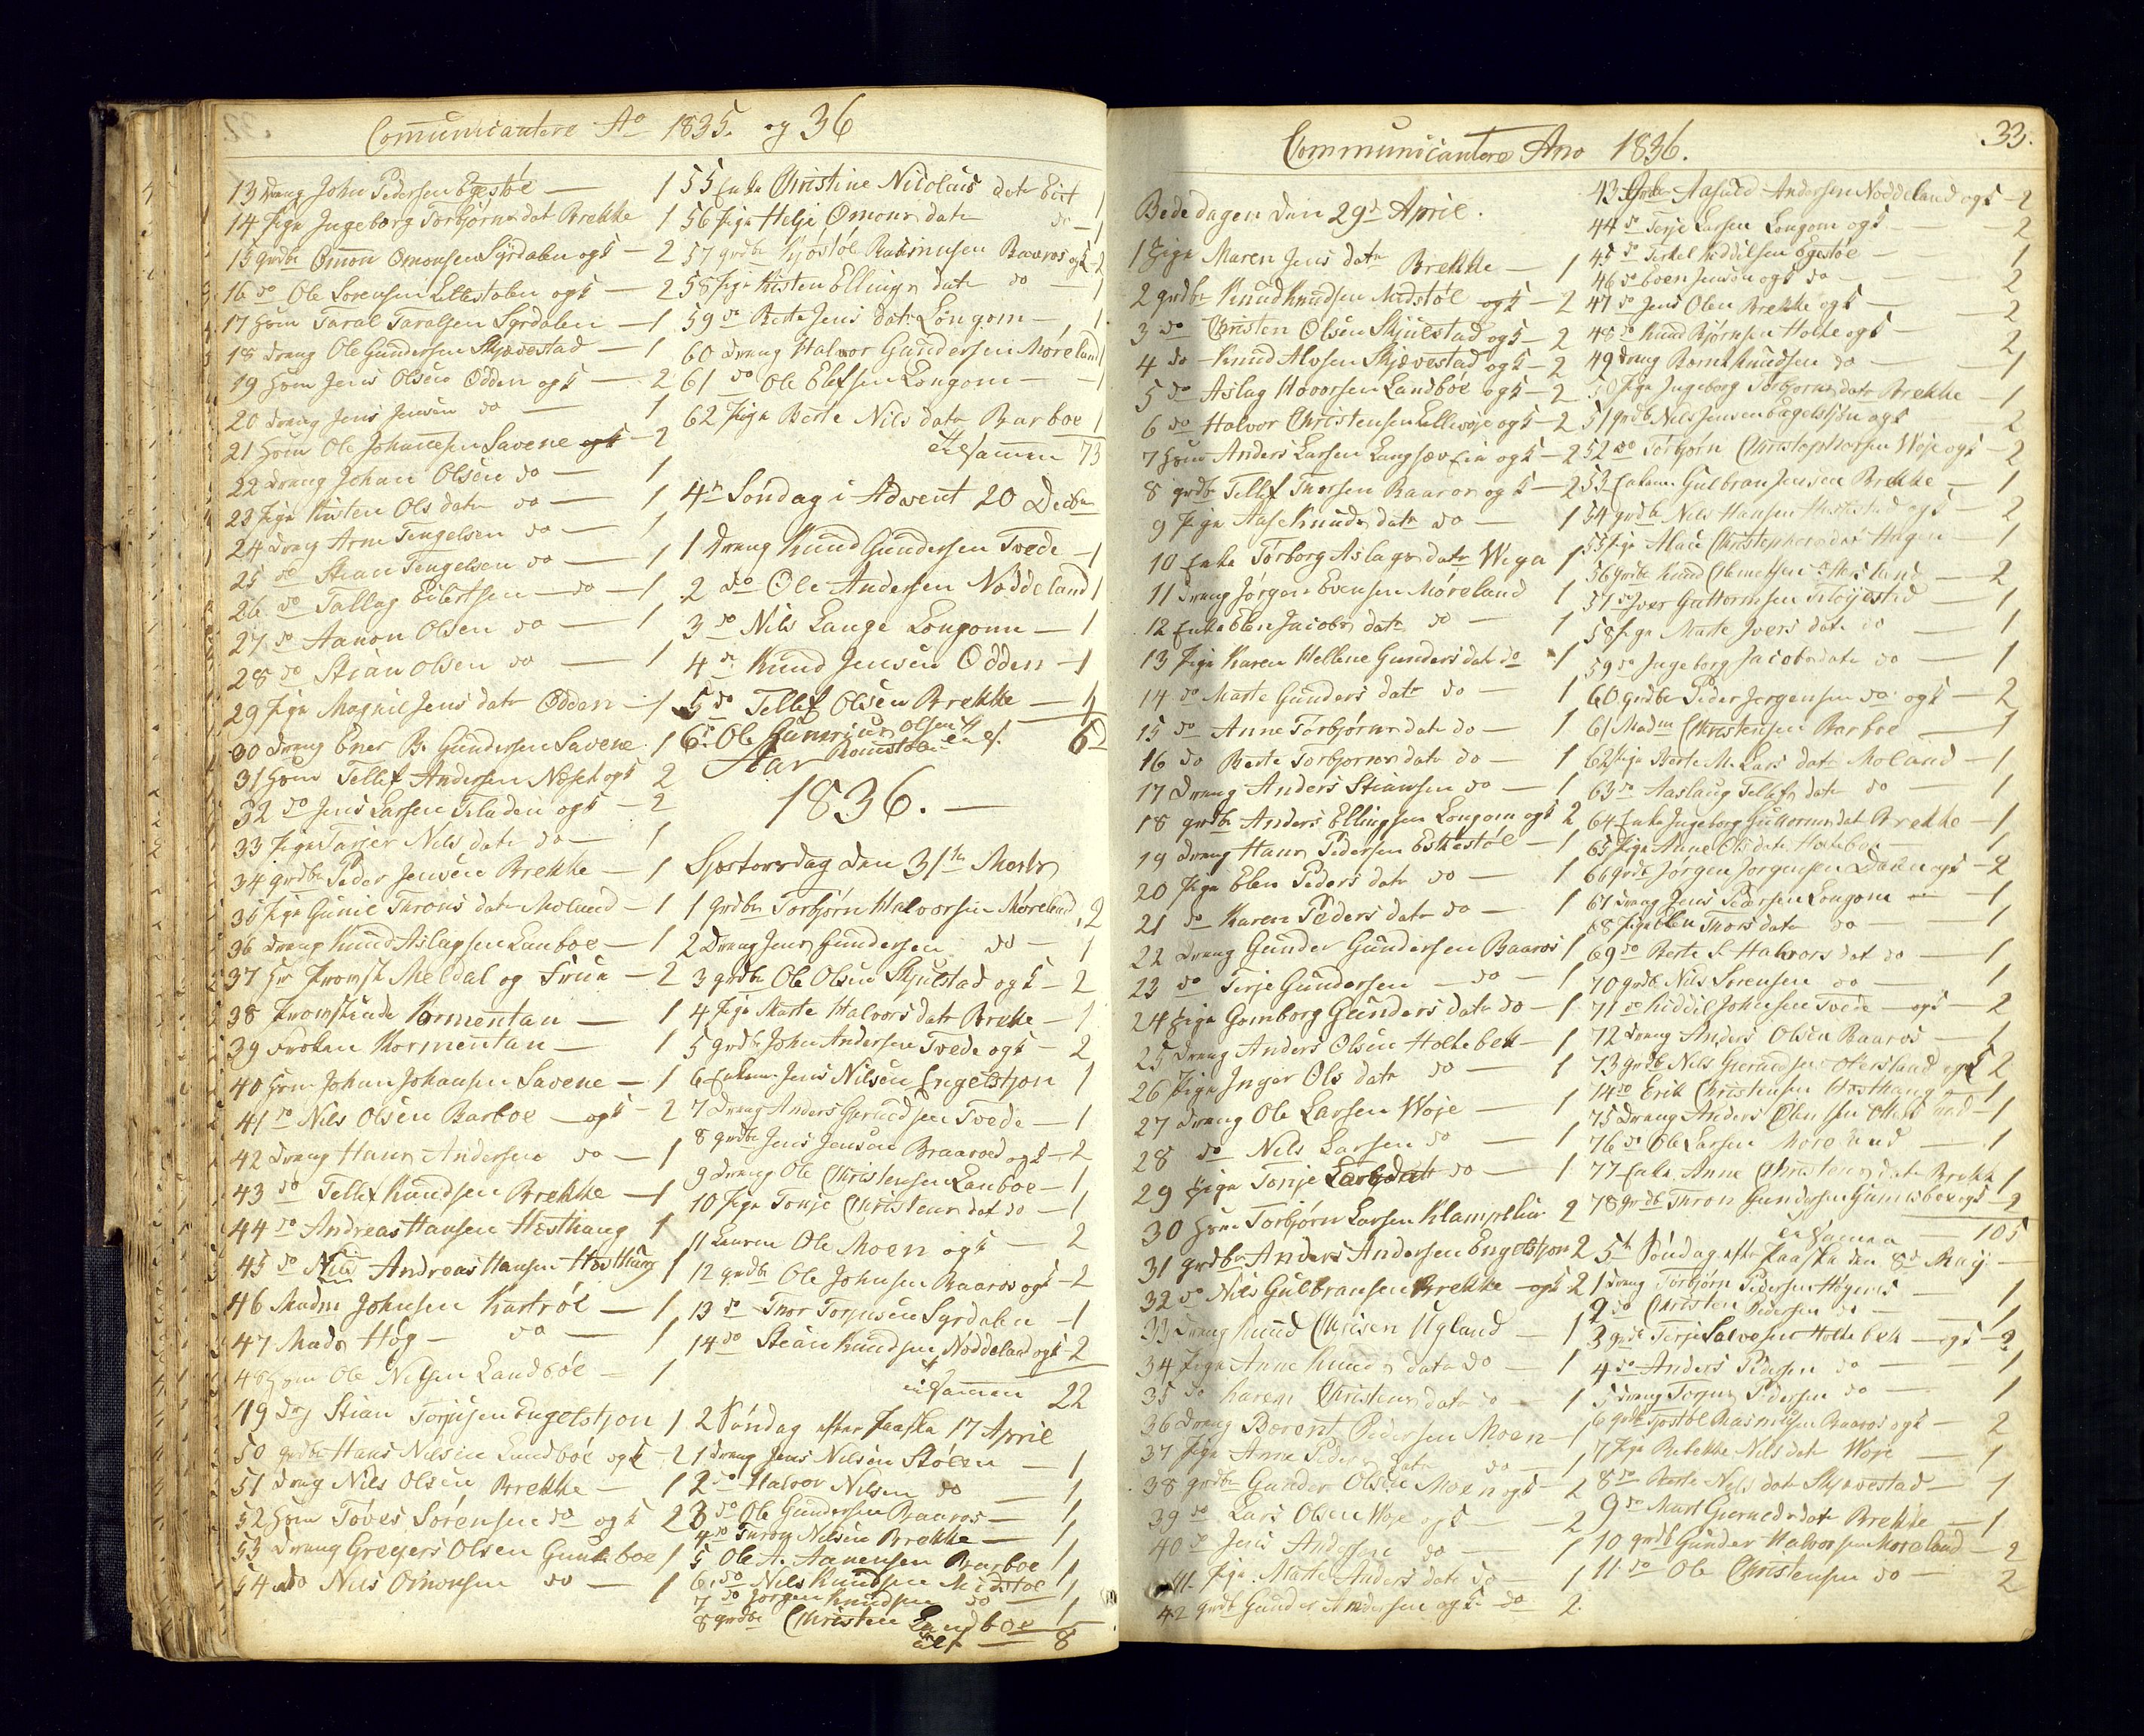 Comunicantere Ao 1835. og 36
13 Drang John Pedersen Egestøe — 1
14 Pige Ingeborg Torbjørns dat Brekke 1
15 grdbr Omon Omonsen Syrdalen og k — 2
16 do Ole Sorensen Ellestølen og k — 2
17 Huusm Taral Taralsen Syrdalen — 1
18 Drang Ole Gundersen Skjævestad — 1
19 Huusm Jens Olsen Odden og k — 2
20 Drang Jens Jensen do — 1
21 Huusm Ole Johannesen Savene og k — 2
22 Drang Johan Olsen do — 1
23 Pige Kisten Ols datr do — 1
24 Drang Arne Tengelsen do — 1
25 do Stian Tengelsen do — 1
26 do Tallag Eilertsen — do — 1
27 do Aanon Olsen do — 1
28 do Stian Olsen do — 1
29 Pige Magnil Jens datr Odden — 1
30 Drang Ener B. Gundersen Savene 1
31 Huusm Tellef Andersen Næset og k 2
32 do Jens Larsen Tiladen og k — 2
33 Pige Tarjer Nils datr do — 1
34 grdbr Peder Jensen Brekke — 1
35 Pige Gunil Throns datr Moland — 1
36 Drang Knud Aslagsen Lanboe — 1
37 Hr Provst Meldal og Frue — 2
38 Provstinde Kormentan — 1
39 Frøken Kormentan — 1
40 Huusm Johan Johansen Savene — 1
41 do Nils Olsen Barboe — og k — 2
42 Drang Hans Andersen do — 1
43 do Tellef Knudsen Brekke — 1
44 do Andreas Hansen Hæsthaug 1
45 do Nils Andreas Hansen Hæsthaug 1
46 Madm Johnsen Kartrøe — 1
47 Madm Høg — do — 1
48 Huusm Ole Nilsen Landbøe — 1
49 Drg Stian Torjusen Engelstjon 1
50 grdbr Hans Nilsen Lundboe og k — 2
51 Drang Nils Olsen Brekke — 1
52 Huusm Toves Sørensen do og k 2
53 Drang Gregers Olsen Gunleboe 1
54 do Nils Omonsen do — 1
55 Enke Christine Nicolais datr Eiet 1
56 Pige Helje Omons datr do — 1
57 grdbr Kjøstøl Rasmusen Baaros og k — 2
58 Pige Kisten Ellings datr do — 1
59 do Berte Jens datr Longom — 1
60 Drang Halvor Gundersen Moreland 1
61 do Ole Elefsen Longom — 1
62 Pige Berte Nils datr Barboe 1
Tilsamen 73
4de Søndag i Advent 20 Decbr
1 Drang Knud Gundersen Tvede — 1
2 do Ole Andersen Noddeland 1
3 do Nils Lange Longom — 1
4 do Knud Jensen Odden — 1
5 do Tellef Olsen Brekke — 1
6 Ole Gunnius Olsen 6
Aar
1836. —
Sjæstorsdag den 31te Marts
1 grdbr Torbjørn Halvorsen Møreland 2
2 Drang Jens Gundersen do — 1
3 grdbr Ole Olsen Skjulstad og k — 2
4 Pige Marte Halvors datr Brekke — 1
5 grdbr John Andersen Tvede og k — 2
6 Enkem Jens Nilsen Engelstjon 1
7 Drang Anders Gjerulsen Tvede — 1
8 grdbr Jens Jensen Braaroed og k — 2
9 Drang Ole Christensen Lanboe — 1
10 Pige Tonje Christens dat do — 1
11 Ole Moen og k — 2
12 grdbr Ole Johnsen Baaros og k — 2
13 do Thor Torjusen Syrdalen — 1
14 do Stian Knudsen Noddeland og k — 2
Tilsamen 22
2 Søndag efter Paaska 17 April
1 Drang Jens Nilsen Stølen — 1
2 do Halvor Nilsen do — 1
3 do Ole Gundersen Baaros — 1
4 do Thron Nilsen Brekke — 1
5 Ole A. Aanensen Barboe 1
6 do Nils Knudsen Midstøl 1
7 do Jorgen Knudsen do 1
8 grdbr Christen Landboe 1
alt — 8
Communicantere Ano 1836.
33.
Bededagen den 29de April.
1 Pige Maren Jens datr Brekke — 1
2 grdbr Knud Knudsen Midstøl og k — 2
3 do Christen Olsen Skjulstad og k — 2
4 do Knud Alvsen Skjævestad og k — 2
5 do Aslag Hovorsen Landboe og k — 2
6 do Halvor Christensen Ellevøje og k — 2
7 Huusm Anders Larsen Langsæv Eie og k — 2
8 grdbr Tellef Thorsen Baaros og k — 2
9 Pige Aase Knuds datr do — 1
10 Enke Torborg Aslags datr Wiga 1
11 Drang Jørgen Evensen Møreland 1
12 Enke Elen Jacobs datr do — 1
13 Pige Karen Hellene Gunders datr do 1
14 do Marte Gunders datr do — 1
15 do Anne Torbjørns datr do — 1
16 do Berte Torbjorns datr do — 1
17 Drang Anders Stiansen do — 1
18 grdbr Anders Ellingsen Longom og k 2
19 Drang Hans Pedersen Eskestøl — 1
20 Pige Elen Peders datr do — 1
21 do Karen Peders datr do — 1
22 Drang Gunder Gundersen Baaros 1
23 do Terje Gundersen — do — 1
24 Pige Gomborg Gunders datr do — 1
25 Drang Anders Olsen Holtebek — 1
26 Pige Inger Ols datr do — 1
27 Drang Ole Larsen Woje — 1
28 do Nils Larsen do — 1
29 Pige Tonje Larsdatr do — 1
30 Huusm Torbjørn Larsen Klamplien 2
31 grdbr Anders Andersen Engelstjon 2
32 do Nils Gulbransen Brekke — og k 2
33 Drang Knud Chrisen Ugland — 1
34 Pige Anne Knuds datr do — 1
35 do Karen Christens datr do — 1
36 Drang Barent Pedersen Moen — 1
37 Pige Anne Peders datr do — 1
38 grdbr Gunder Olsen Moen og k — 2
39 do Lars Olsen Woje og k — 2
40 do Jens Andersen do — 1
41. Pige Marte Anders datr do — 1
42 grdbr Gunder Andersen og k do 2.
43 grdbr Aasuld Andersen Noddeland og k — 2
44 do Terje Larsen Longom og k — 2
45 do Terkel Kiddilsen Egestøe — 1
46 do Even Jensen og k do — 2
47 do Jens Olsen Brekke og k — 2
48 do Knud Bjørnsen Holte og k — 2
49 Drang Bernt Knudsen do — 1
50 Pige Ingeborg Torbjorns datr Brekke — 1
51 grdbr Nils Jensen Engelstjøn og k — 2
52 do Torbjørn Christophersen Woje og k — 2
53 Enkem Gulbran Jensen Brekke — 1
54 grdbr Nils Hansen og k — 2
55 Pige Alace Christophersdatr Hagen — 1
56 grdbr Knud Clemetsen — 2
57 do Iver Guttormsen — 1
58 Pige Marte Ivers datr do — 1
59 do Ingeborg Jacobsdatr do — 1
60 grdbr Peder Jorgensen do og k — 2
61 Madm Christensen Barboe — 1
62 Pige Berte M. Lars datr Moland — 1
63 do Aaslaug Tellefs datr do — 1
64 Enke Ingeborg Guttormsdat Brekke — 1
65 Pige Anne Ols datr 1
66 grdbr Jørgen Jorgensen Dalen og k — 2
67 Drang Jens Pedersen Longom — 1
68 Pige Elen Thors datr do — 1
69 do Berte S. Halvors dat do — 1
70 grdbr Nils Sorensen do — 1
71 do Kiddil Johnsen Tvede — og k — 2
72 Drang Anders Olsen Baaros — 1
73 grdbr Nils Gjerulsen Otersland og k 2
74 do Erik Christensen Hæsthaug — 1
75 Drang Anders 1
76 do Ole Larsen Moreland — 1
77 Enke Anne Christens datr Brekke 1
78 grdbr Thron Gundersen Gunleboe og k — 2
Tilsamen — 105
5te Søndag efter Paaska den 8de May —
1 Drang Torbjørn Pedersen — 1
2 do Christen Pedersen do — 1
3 grdbr Terje Salvesen Holtebek — og k — 2
4 do Anders Pedersen do — 1
5 Drang Torjus Pedersen do — 1
6 grdbr Kjøstøl Rasmusen Baaros og k — 2
7 Pige Rebekke Nils dat Woje — 1
8 do Berte Nels datr Skjævestad — 1
9 do Mari Gjeruls dat Brekke — 1
10 grdbr Gunder Halvorsen Moreland — 2
11. do Ole Christensen do — 2